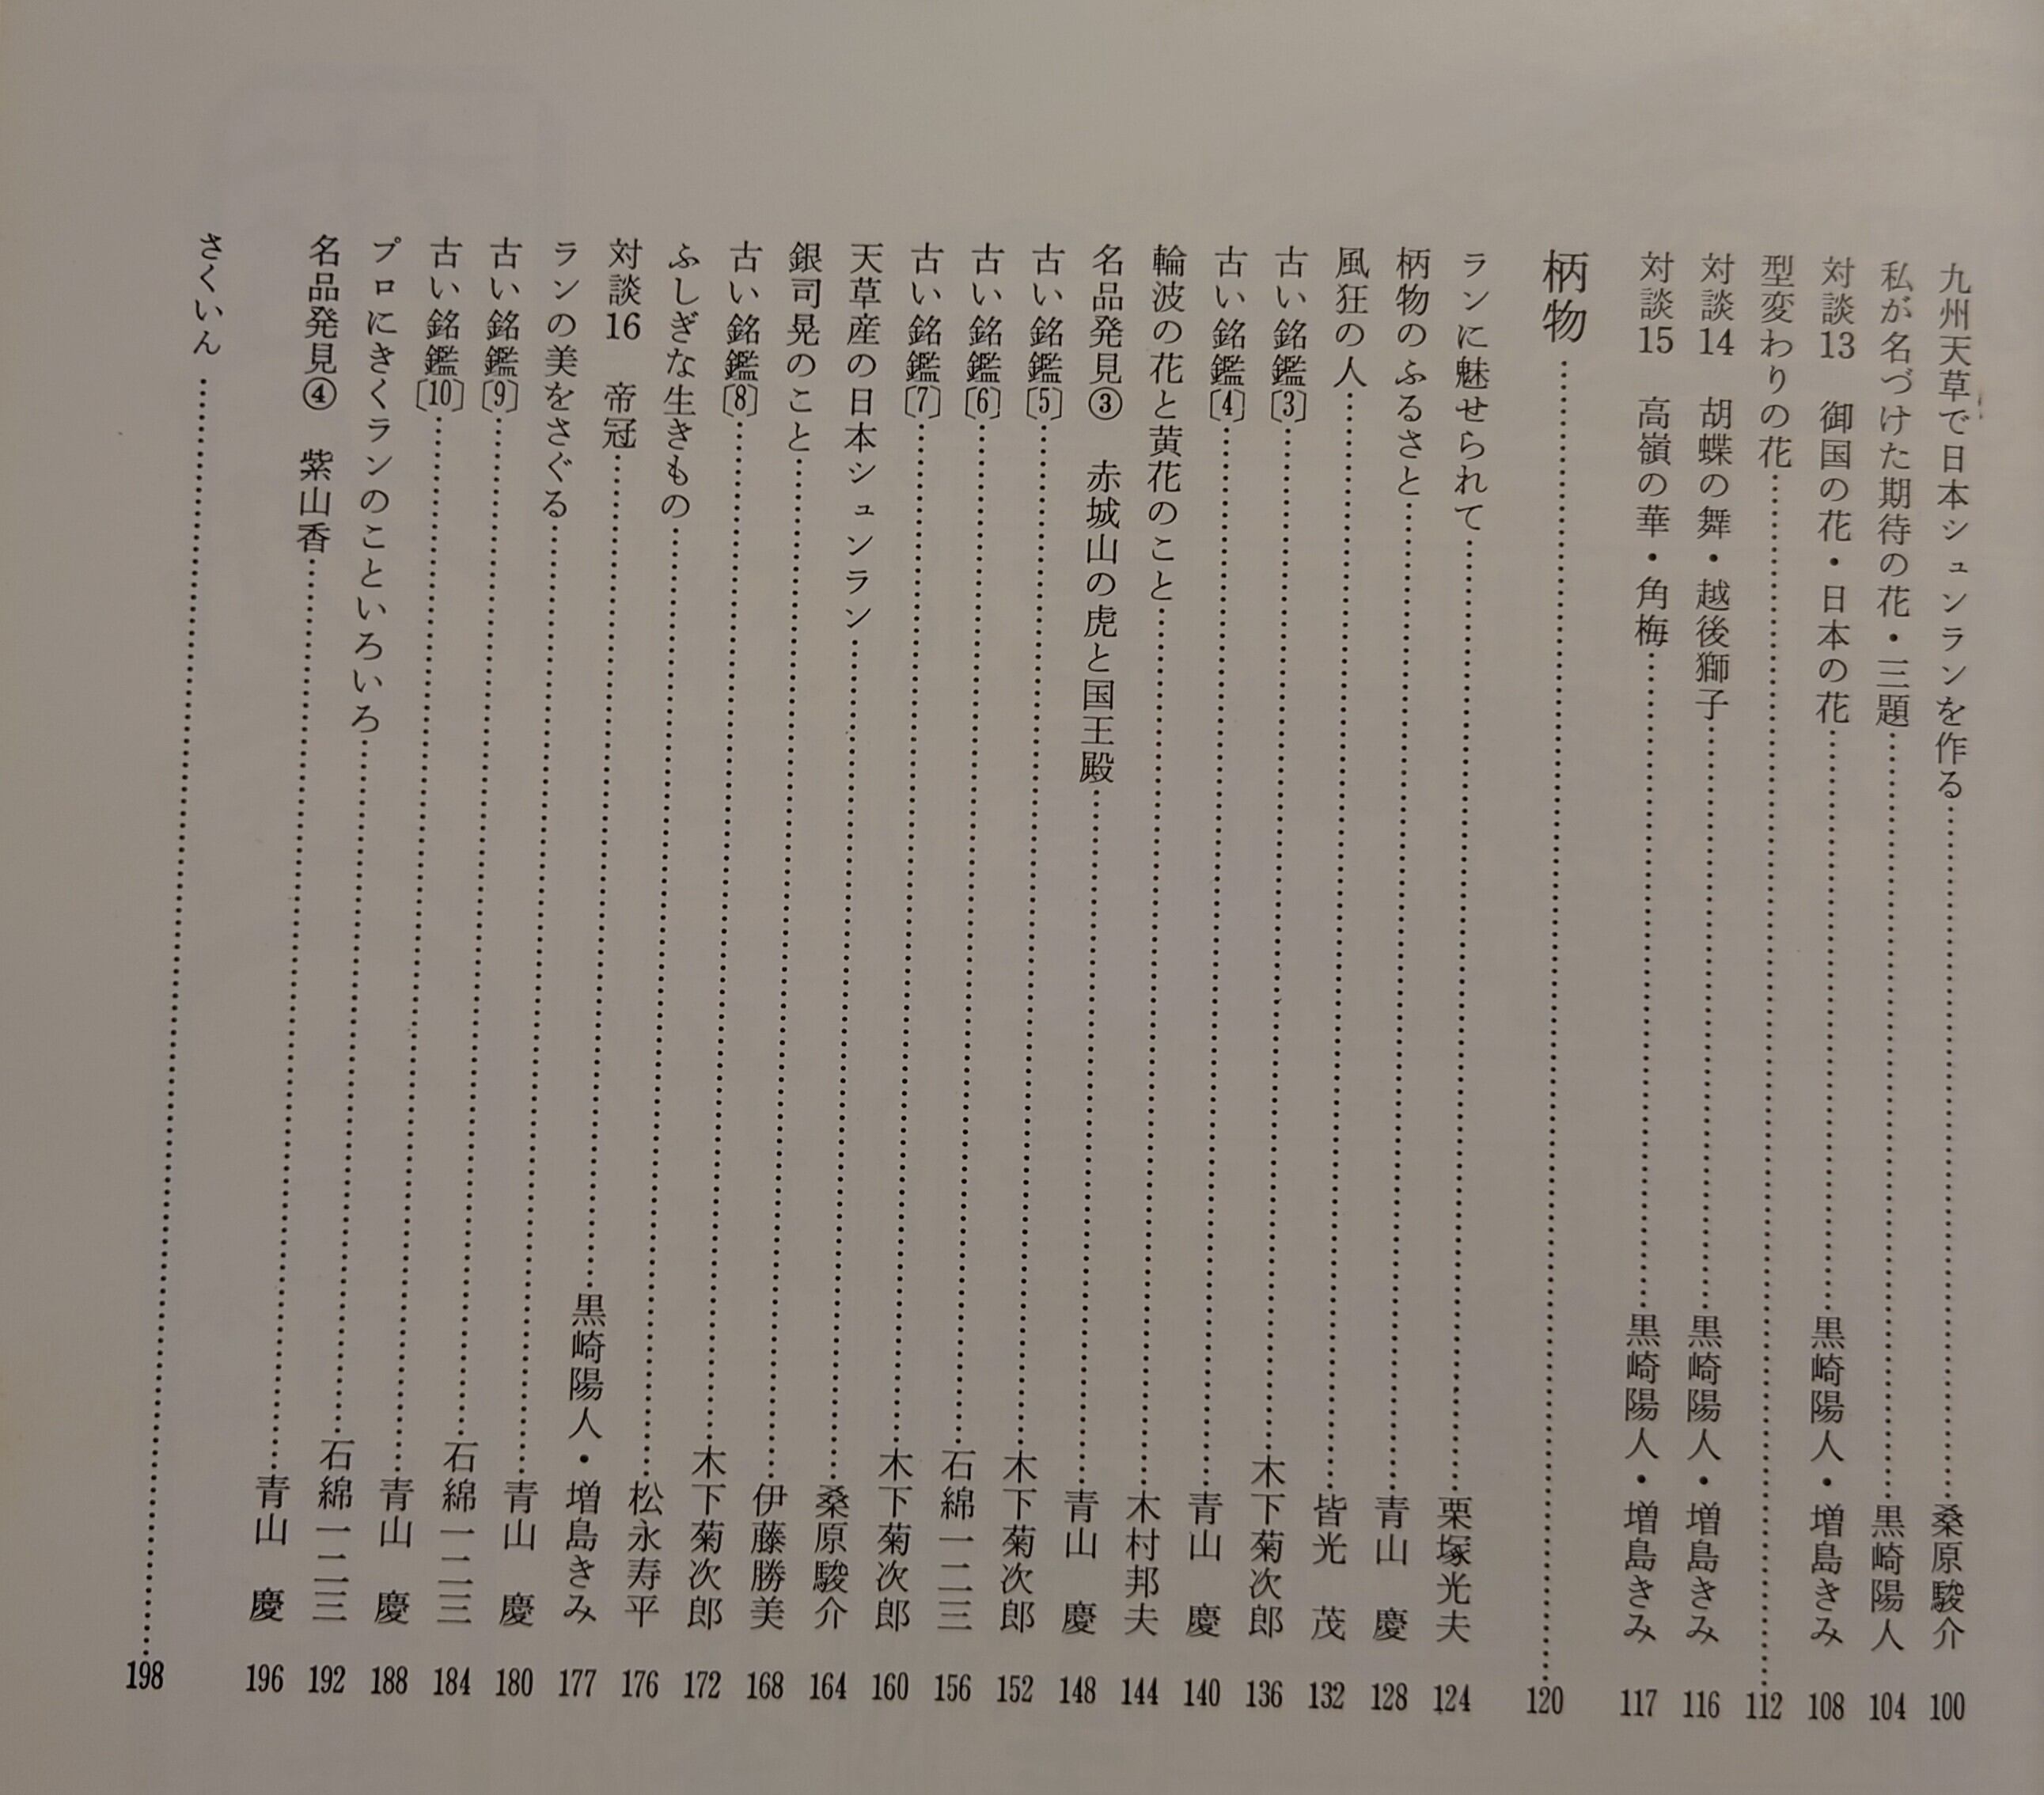 九州天草で日本シュンランを作る……桑原駿介 100
私が名づけた期待の花・三題……黒崎陽人 104
対談13 御国の花・日本の花……黒崎陽人・増島きみ 108
型変わりの花……112
対談14 胡蝶の舞・越後獅子……黒崎陽人・増島きみ 116
対談15 高嶺の華・角梅……黒崎陽人・増島きみ 117
柄物……120
ランに魅せられて……栗塚光夫 124
柄物のふるさと……青山 慶 128
風狂の人……皆光 茂 132
古い銘鑑〔3〕……木下菊次郎 136
古い銘鑑〔4〕……青山 慶 140
輪波の花と黄花のこと……木村邦夫 144
名品発見③ 赤城山の虎と国王殿……青山 慶 148
古い銘鑑〔5〕……木下菊次郎 152
古い銘鑑〔6〕……石綿一二三 156
古い銘鑑〔7〕……木下菊次郎 160
天草産の日本シュンラン……桑原駿介 164
銀司晃のこと……伊藤勝美 168
古い銘鑑〔8〕……木下菊次郎 172
ふしぎな生きもの……松永寿平 176
対談16 帝冠……黒崎陽人・増島きみ 177
ランの美をさぐる……青山 慶 180
古い銘鑑〔9〕……石綿一二三 184
古い銘鑑〔10〕……青山 慶 188
プロにきくランのこといろいろ……石綿一二三 192
名品発見④ 紫山香……青山 慶 196
さくいん……198